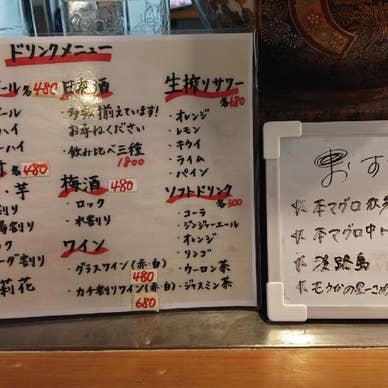 ドリンクメニュー
ール各480
ール
ハイ
ーハイ
480
・芋
割り
割り
ーダ割り
莉花
日本酒
・多数揃えています!
お尋ねください
・飲み比べ三種
1800
梅酒 480
・ロック
・水割り
ワイン
・グラスワイン(赤・白)
480
・カチ割りワイン(赤・白)
680
生搾りサワー
各680
・オレンジ
・レモン
・キウイ
・ライム
・パイン
ソフトドリンク
各300
・コーラ
・ジンジャーエール
・オレンジ
・リンゴ
・ウーロン茶
・ジャスミン茶
おす
本マグロ
本マグロ中ト
淡路島
モウカの星